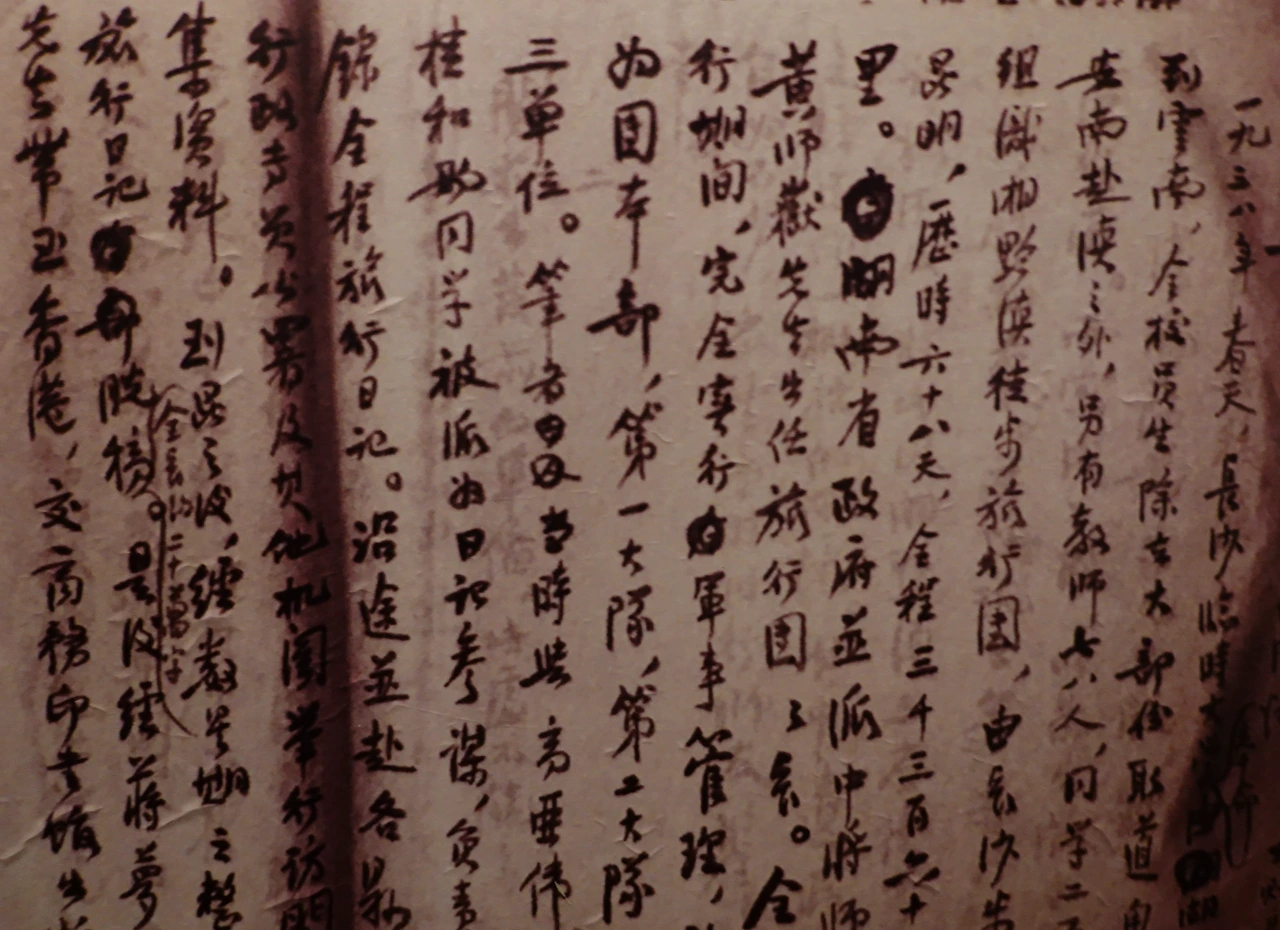 一九三八年春天，長沙臨時大
到雲南，全校員生除去大部份取道
安南赴滇之外，另有教師七八人，同学二
組織湘黔滇徒步旅行团，由長沙步
昆明，歷時六十八天，全程三千三百六十
里。湖南省政府並派中將師
黄师嶽先生出任旅行团之長。全
行期间，完全实行軍事管理，
为团本部，第一大隊，第二大隊
三单位。笔者当時与高亜偉
桂和同学被派为日记参谋，負責
錄全程旅行日记。沿途並赴各县
行政专员公署及其他机関举行访問
集资料。到昆之後，經数星期之整
旅行日记脱稿。全長約二十萬字是後經蒋夢
先生带至香港，交商務印书馆出